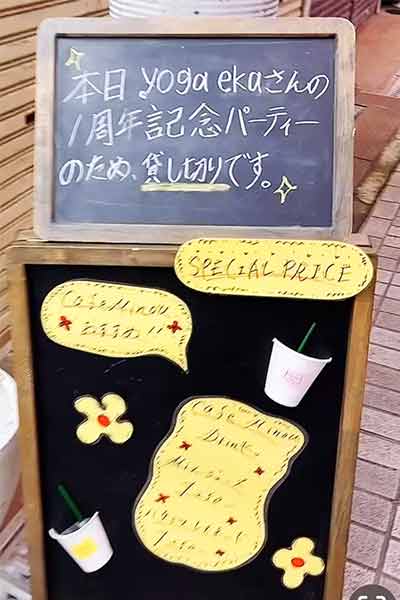 本日 yoga ekaさんの
1周年記念パーティー
のため、貸し切りです。
SPECIAL PRICE
Cafe Minou
おすすめ!!
Cafe Minou
Drink